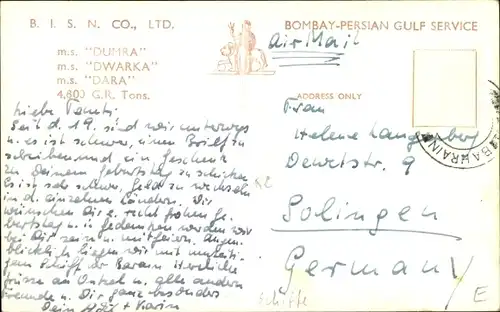 B. I. S. N. CO., LTD.
BOMBAY-PERSIAN GULF SERVICE
m.s. "DUMRA"
m.s. "DWARKA"
m.s. "DARA"
4,800 G.R. Tons.
Air Mail
ADDRESS ONLY
BAHRAIN
Liebe Tanti.
Seit d. 19. sind wir unterwegs
u. es ist schwer, einen Brief zu
schreiben und ein Geschenk
zu Deinem Geburtstag zu schicken
Es ist sehr schwer, Geld zu wechseln
in d. einzelnen Ländern. Wir
wünschen Dir e. recht frohen Ge
burtstag u. in Gedanken werden wir
bei Dir sein u. mitfeiern. Augen
blicklich liegen wir mit
Schiff vor Barain Herzliche
Grüsse an Onkel u. alle andern
Freunde u. Dir ganz besonders
Dein + Karin
Frau
Helene
Dewetstr. 9
Solingen
Germany
Schiffe
E